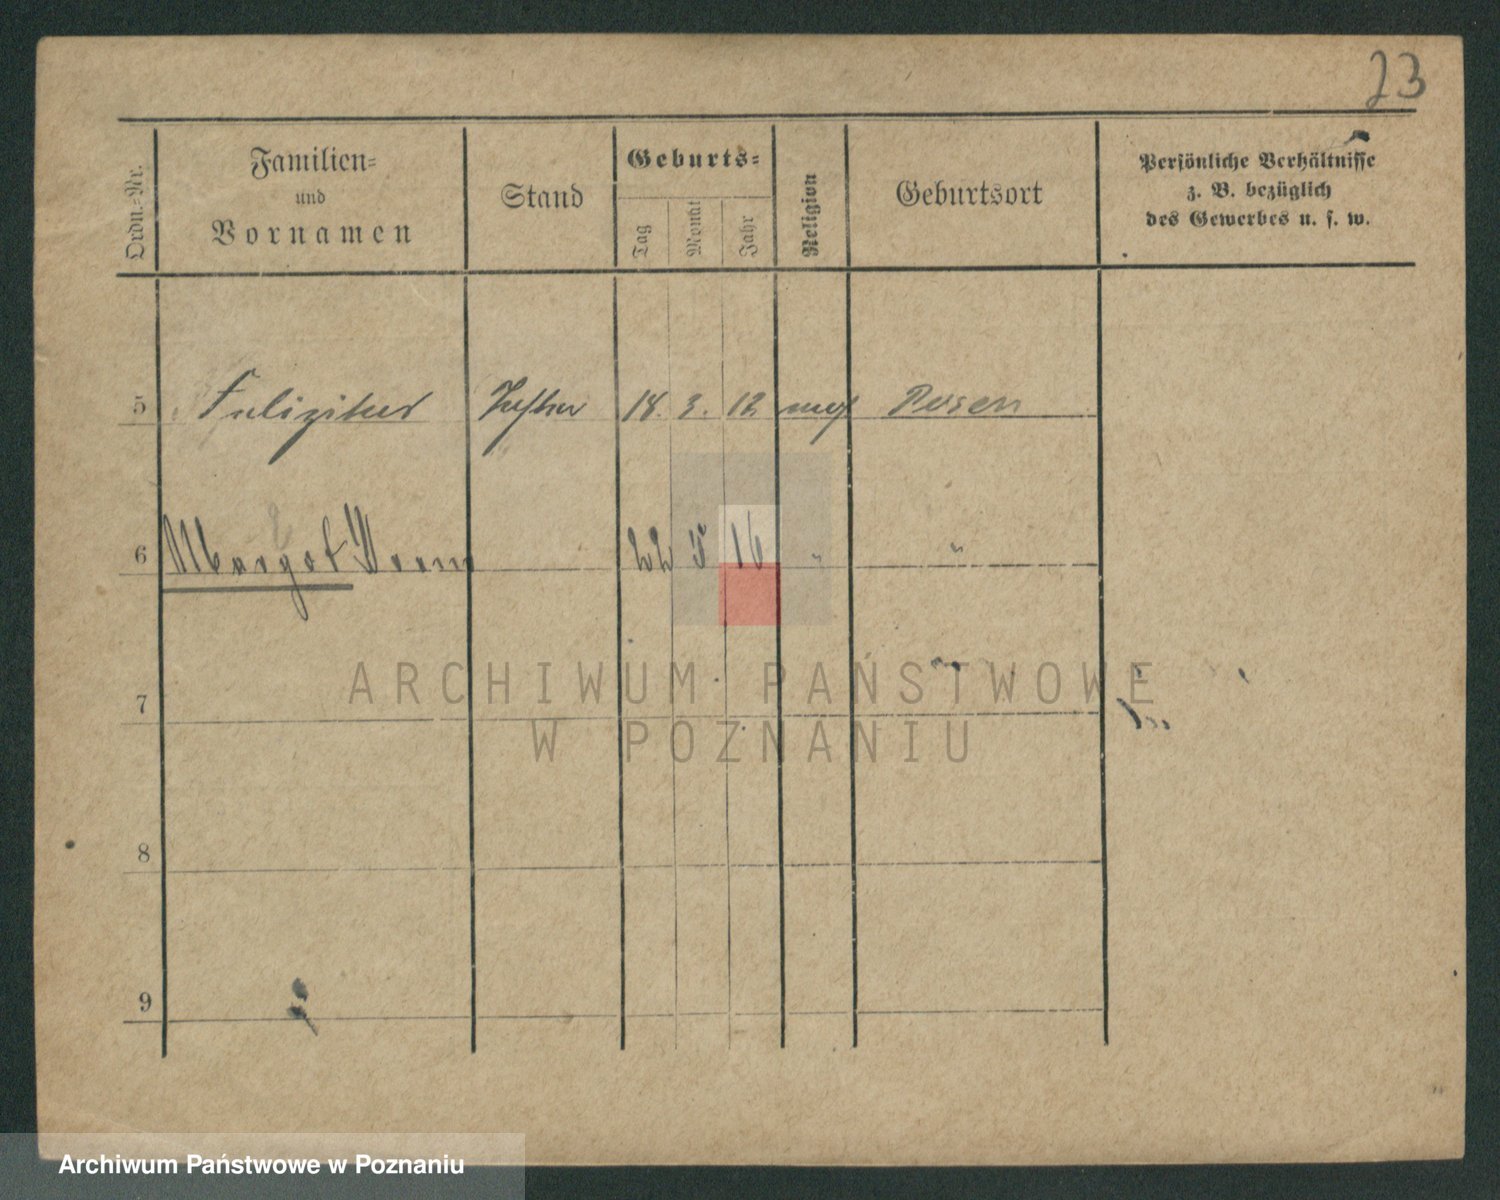 23
Ordn.-Nr.
Familien-
und
Vornamen
Stand
Geburts-
Tag
Monat
Jahr
Religion
Geburtsort
Persönliche Verhältnisse
z. B. bezüglich
des Gewerbes u. s. w.
5 Felizitas 18. 3. 12 Posen
6 Margot 22 5 16 " "
7
8
9
ARCHIWUM PAŃSTWOWE
W POZNANIU
Archiwum Państwowe w Poznaniu